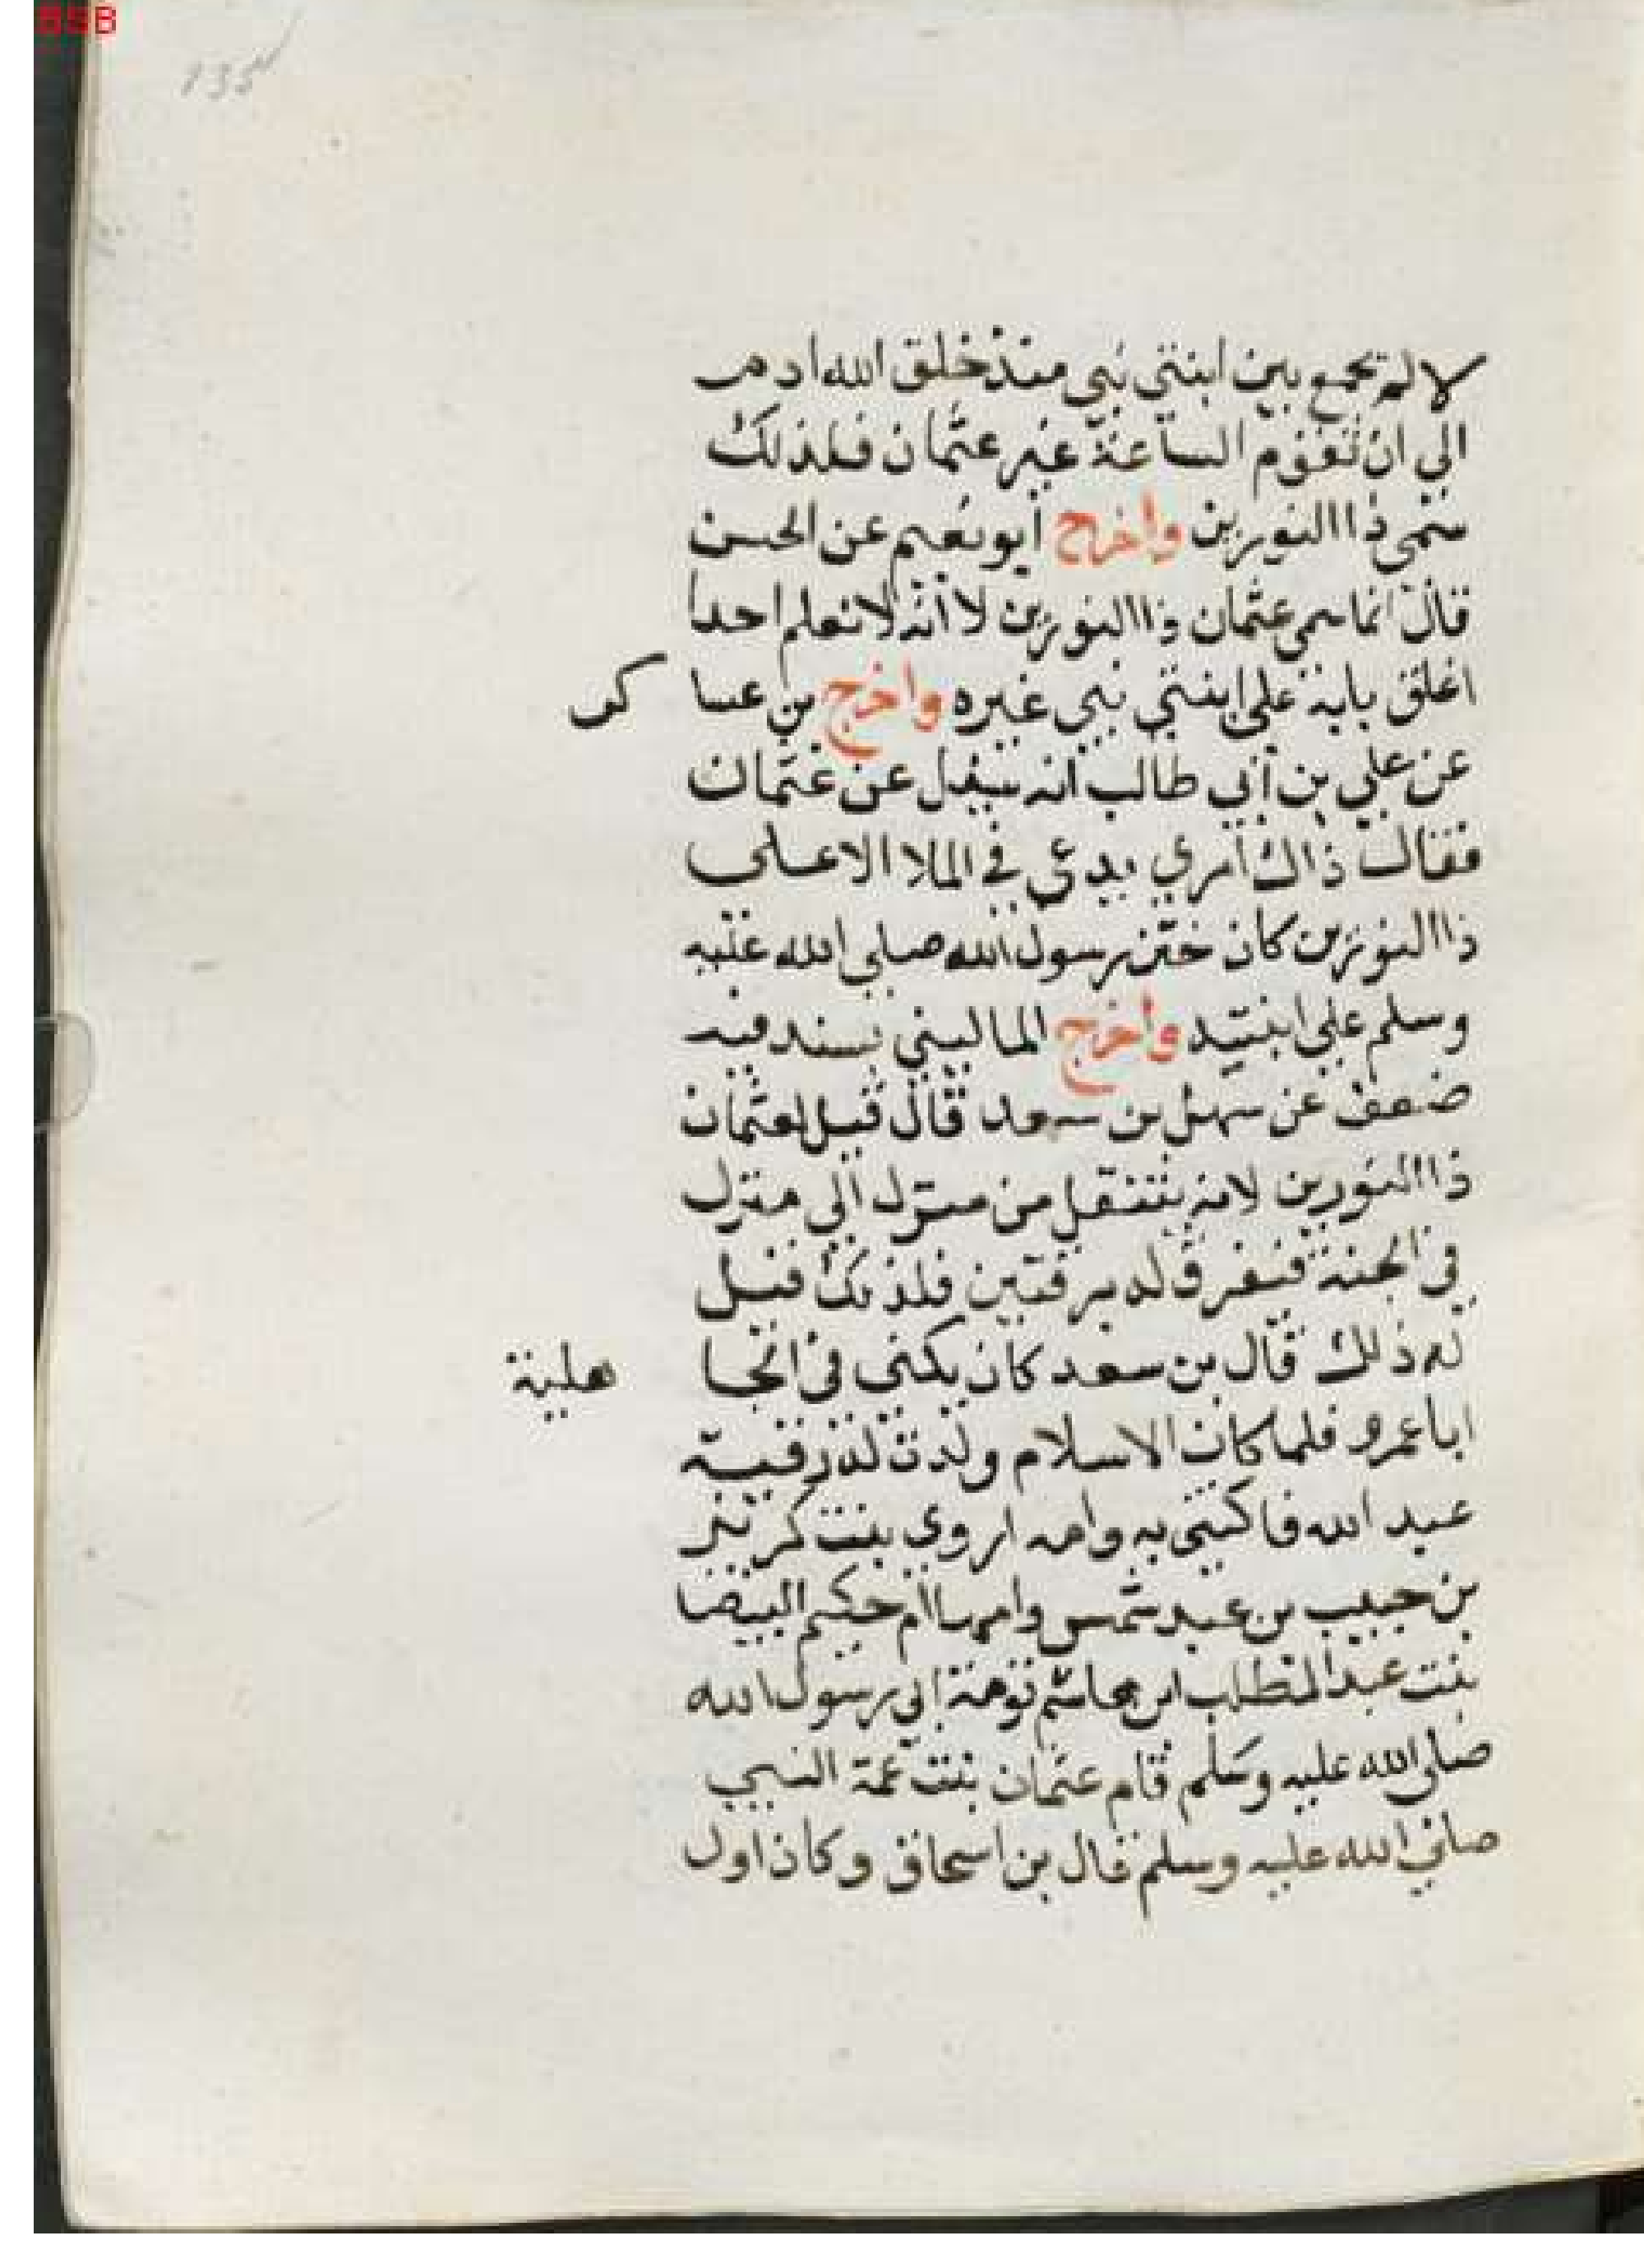 BSB
135
لا لم تجمع بين ابنتي نبي منذ خلق الله ادم
الي ان تقوم الساعة غير عثمان فلذلك
سمي ذا النورين واخرج ابو نعيم عن الحسن
قال انما سمي عثمان ذا النورين لانه لا نعلم احدا
اغلق بابه علي ابنتي نبي غيره واخرج بن عسا كر
عن علي بن ابي طالب انه سيل عن عثمان
فقال ذاك امري يدعي في الملا الاعلي
ذا النورين كان ختن رسول الله صلي الله عليه
وسلم علي ابنتيه واخرج الماليني بسند فيه
ضعف عن سهل بن سعد قال قيل لعثمان
ذا النورين لانه ينتقل من منزل الي منزل
في الجنة فتبرق له برقتين فلذلك قيل
له ذلك قال بن سعد كان يكني في الجا هلية
ابا عمرو فلما كان الاسلام ولدت له رقية
عبد الله فاكتني به وامه اروي بنت كريز
بن حبيب بن عبد شمس وامها ام حكيم البيضا
بنت عبد المطلب ابن هاشم تومة الي رسول الله
صلي الله عليه وسلم قام عثمان بنت عمة النبي
صلي الله عليه وسلم قال بن اسحاق وكان اول